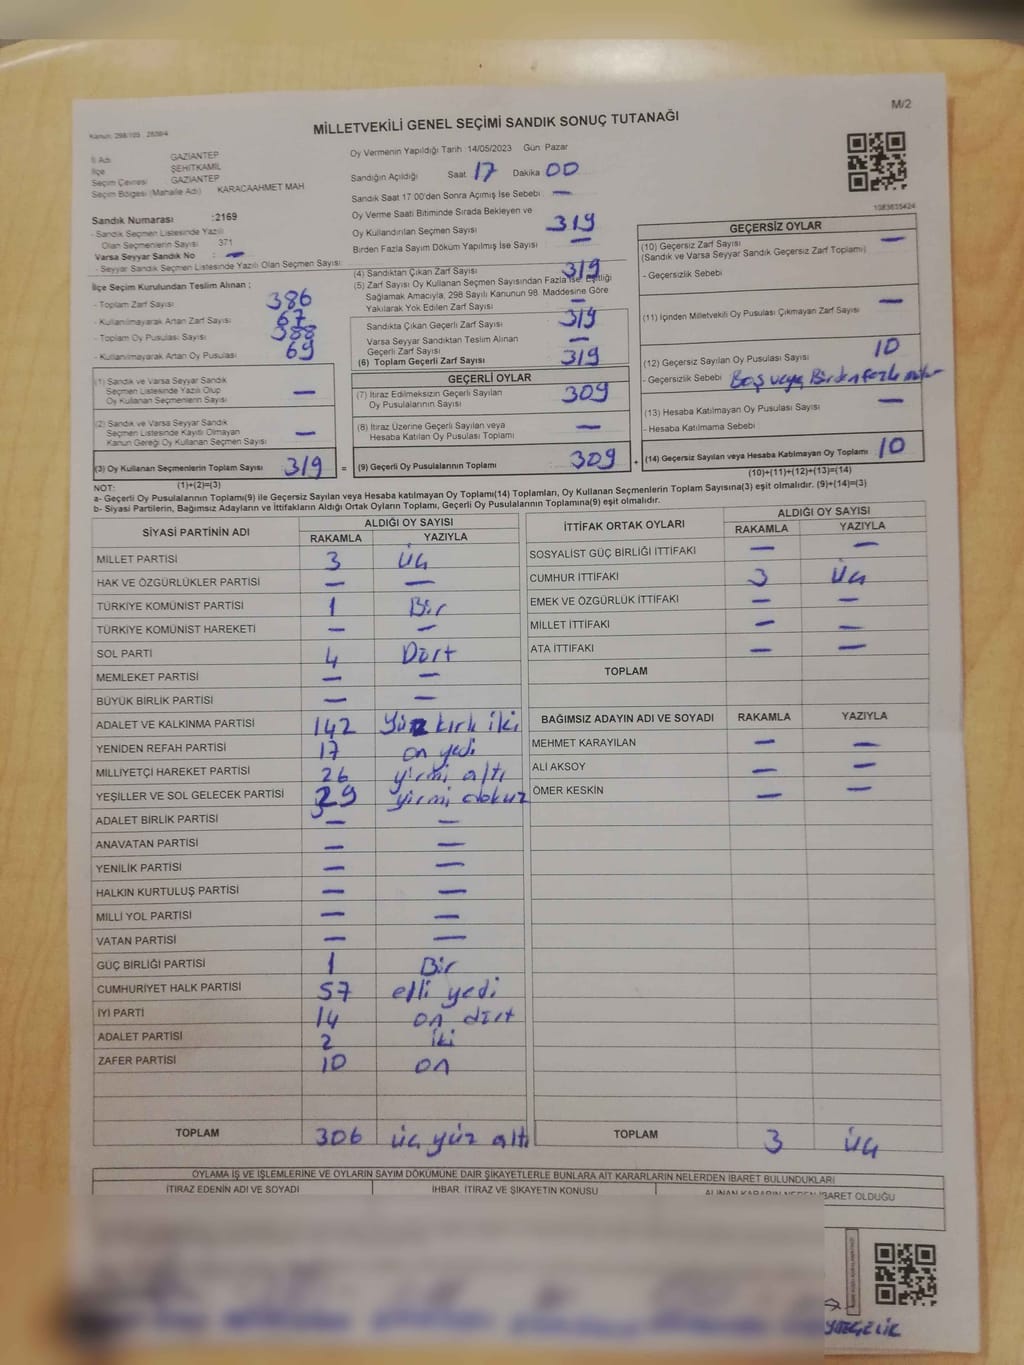 M/2
Kanun: 298/105 , 2839/4
MİLLETVEKİLİ GENEL SEÇİMİ SANDIK SONUÇ TUTANAĞI
İl Adı GAZİANTEP
İlçe ŞEHİTKAMİL
Seçim Çevresi GAZİANTEP
Seçim Bölgesi (Mahalle Adı) KARACAAHMET MAH.
Sandık Numarası :2169
- Sandık Seçmen Listesinde Yazılı
Olan Seçmenlerin Sayısı 371
Varsa Seyyar Sandık No : —
- Seyyar Sandık Seçmen Listesinde Yazılı Olan Seçmen Sayısı:
İlçe Seçim Kurulundan Teslim Alınan :
- Toplam Zarf Sayısı 386
- Kullanılmayarak Artan Zarf Sayısı 67
- Toplam Oy Pusulası Sayısı 388
- Kullanılmayarak Artan Oy Pusulası 69
(1) Sandık ve Varsa Seyyar Sandık
Seçmen Listesinde Yazılı Olup
Oy Kullanan Seçmenlerin Sayısı —
(2) Sandık ve Varsa Seyyar Sandık
Seçmen Listesinde Kayıtlı Olmayan
Kanun Gereği Oy Kullanan Seçmen Sayısı —
(3) Oy Kullanan Seçmenlerin Toplam Sayısı 319 =
(1)+(2)=(3)
Oy Vermenin Yapıldığı Tarih :14/05/2023 Gün Pazar
Sandığın Açıldığı Saat 17 Dakika 00
Sandık Saat 17:00'den Sonra Açımış İse Sebebi —
Oy Verme Saati Bitiminde Sırada Bekleyen ve
Oy Kullandırılan Seçmen Sayısı 319
Birden Fazla Sayım Döküm Yapılmış İse Sayısı —
(4) Sandıktan Çıkan Zarf Sayısı 319
(5) Zarf Sayısı Oy Kullanan Seçmen Sayısından Fazla İse, Eşitliği
Sağlamak Amacıyla, 298 Sayılı Kanunun 98. Maddesine Göre
Yakılarak Yok Edilen Zarf Sayısı —
Sandıkta Çıkan Geçerli Zarf Sayısı 319
Varsa Seyyar Sandıktan Teslim Alınan
Geçerli Zarf Sayısı —
(6) Toplam Geçerli Zarf Sayısı 319
GEÇERLİ OYLAR
(7) İtiraz Edilmeksizin Geçerli Sayılan
Oy Pusulalarının Sayısı 309
(8) İtiraz Üzerine Geçerli Sayılan veya
Hesaba Katılan Oy Pusulası Toplamı —
(9) Geçerli Oy Pusulalarının Toplamı 309 +
1083635424
GEÇERSİZ OYLAR
(10) Geçersiz Zarf Sayısı —
(Sandık ve Varsa Seyyar Sandık Geçersiz Zarf Toplamı)
- Geçersizlik Sebebi
(11) İçinden Milletvekili Oy Pusulası Çıkmayan Zarf Sayısı —
(12) Geçersiz Sayılan Oy Pusulası Sayısı 10
- Geçersizlik Sebebi Boş veya Birden fazla
(13) Hesaba Katılmayan Oy Pusulası Sayısı —
- Hesaba Katılmama Sebebi
(14) Geçersiz Sayılan veya Hesaba Katılmayan Oy Toplamı 10
(10)+(11)+(12)+(13)=(14)
NOT:
a- Geçerli Oy Pusulalarının Toplamı(9) ile Geçersiz Sayılan veya Hesaba katılmayan Oy Toplamı(14) Toplamları, Oy Kullanan Seçmenlerin Toplam Sayısına(3) eşit olmalıdır. (9)+(14)=(3)
b- Siyasi Partilerin, Bağımsız Adayların ve İttifakların Aldığı Ortak Oyların Toplamı, Geçerli Oy Pusulalarının Toplamına(9) eşit olmalıdır.
SİYASİ PARTİNİN ADI ALDIĞI OY SAYISI
RAKAMLA YAZIYLA
MİLLET PARTİSİ 3 Üç
HAK VE ÖZGÜRLÜKLER PARTİSİ — —
TÜRKİYE KOMÜNİST PARTİSİ 1 Bir
TÜRKİYE KOMÜNİST HAREKETİ — —
SOL PARTİ 4 Dört
MEMLEKET PARTİSİ — —
BÜYÜK BİRLİK PARTİSİ — —
ADALET VE KALKINMA PARTİSİ 142 Yüz kırk iki
YENİDEN REFAH PARTİSİ 17 on yedi
MİLLİYETÇİ HAREKET PARTİSİ 26 yirmi altı
YEŞİLLER VE SOL GELECEK PARTİSİ 29 yirmi dokuz
ADALET BİRLİK PARTİSİ — —
ANAVATAN PARTİSİ — —
YENİLİK PARTİSİ — —
HALKIN KURTULUŞ PARTİSİ — —
MİLLİ YOL PARTİSİ — —
VATAN PARTİSİ — —
GÜÇ BİRLİĞİ PARTİSİ 1 Bir
CUMHURİYET HALK PARTİSİ 57 elli yedi
İYİ PARTİ 14 on dört
ADALET PARTİSİ 2 iki
ZAFER PARTİSİ 10 on
TOPLAM 306 üç yüz altı
İTTİFAK ORTAK OYLARI ALDIĞI OY SAYISI
RAKAMLA YAZIYLA
SOSYALİST GÜÇ BİRLİĞİ İTTİFAKI — —
CUMHUR İTTİFAKI 3 Üç
EMEK VE ÖZGÜRLÜK İTTİFAKI — —
MİLLET İTTİFAKI — —
ATA İTTİFAKI — —
TOPLAM
BAĞIMSIZ ADAYIN ADI VE SOYADI RAKAMLA YAZIYLA
MEHMET KARAYILAN — —
ALİ AKSOY — —
ÖMER KESKİN — —
TOPLAM 3 üç
OYLAMA İŞ VE İŞLEMLERİNE VE OYLARIN SAYIM DÖKÜMÜNE DAİR ŞİKAYETLERLE BUNLARA AİT KARARLARIN NELERDEN İBARET BULUNDUKLARI
İTİRAZ EDENİN ADI VE SOYADI İHBAR, İTİRAZ VE ŞİKAYETİN KONUSU ALINAN KARARIN NEDEN İBARET OLDUĞU